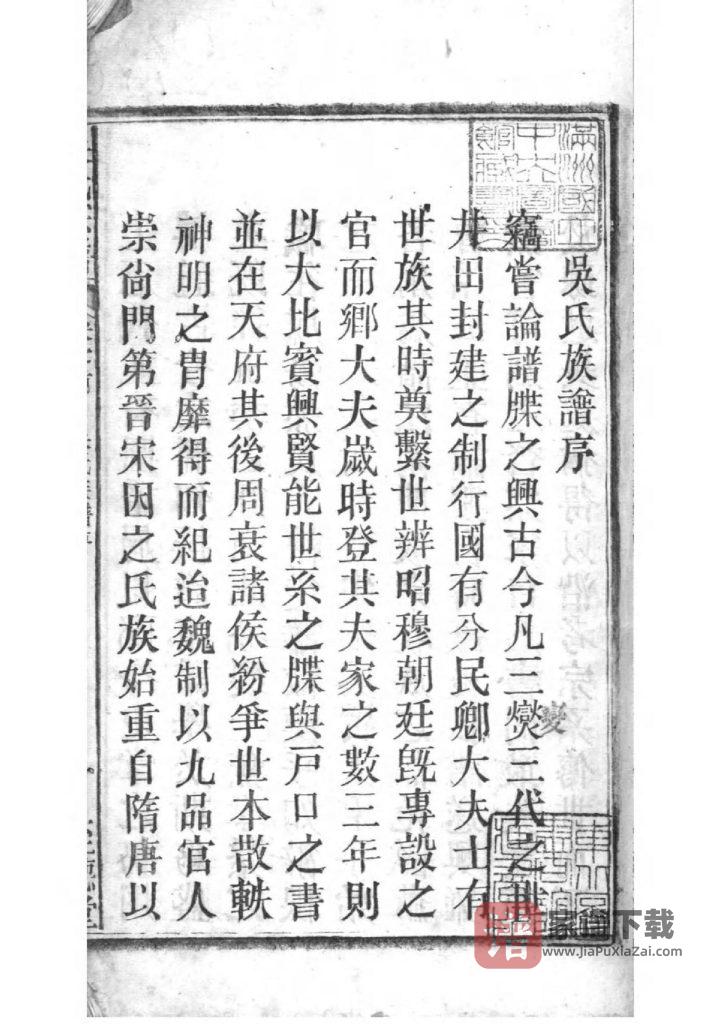 吳氏族譜序
竊嘗論譜牒之興古今凡三燮三代之世
變
井田封建之制行國有分民卿大夫士有
世族其時奠繫世辨昭穆朝廷旣專設之
官而鄉大夫嵗時登其夫家之數三年則
以大比賓興賢能世系之牒與戸口之書
並在天府其後周衰諸侯紛爭世本散軼
神明之胄靡得而紀迨魏制以九品官人
崇尙門第晉宋因之氏族始重自隋唐以
滿洲國立
中央圖書
館藏書
家谱下载
www.JiaPuXiaZai.com